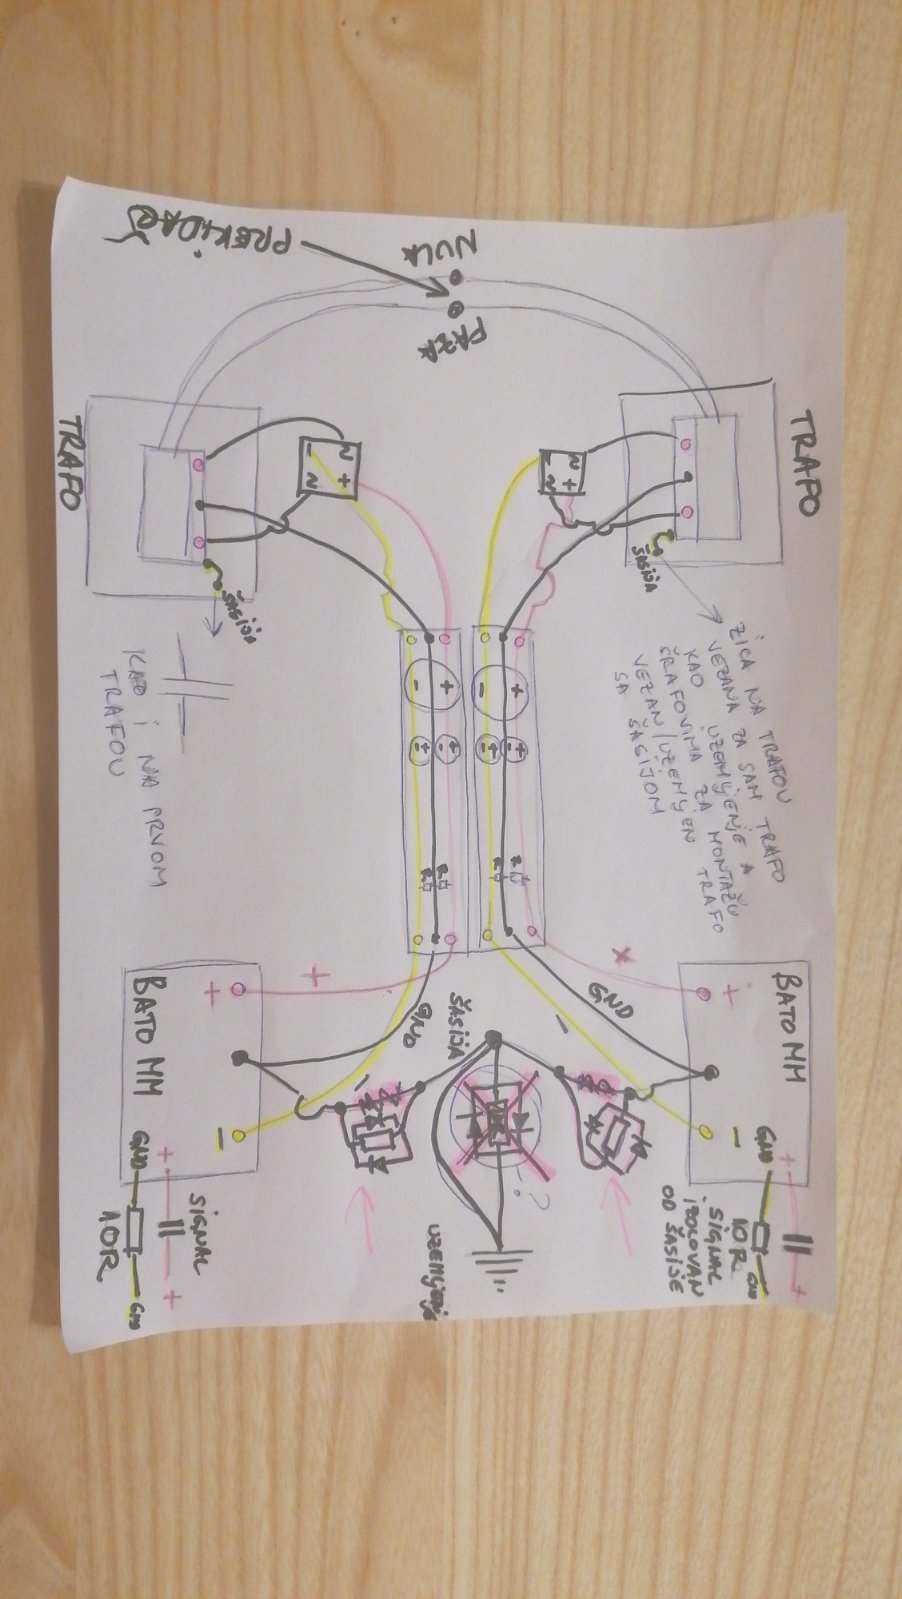 PREKIDAČ
NULA
FAZA
TRAFO
TRAFO
~
+
~
-
~
+
~
-
ŠASIJA
ŠASIJA
ŽICA NA TRAFOU
VEZANA ZA SAM TRAFO
KAO UZEMLJENJE A
ŠRAFOVIMA ZA MONTAŽU TRAFO
VEZAN/UZEMLJEN
SA ŠASIJOM
KAO I NA PRVOM
TRAFOU
- +
- +
R R
R R
+
+
GND
GND
-
-
ŠASIJA
BATO MM
+
-
BATO MM
+
-
10
?
UZEMLJENJE
GND
+
SIGNAL
10R
+
GND
GND
+
10R
SIGNAL
IZOLOVAN
OD ŠASIJE
GND
+